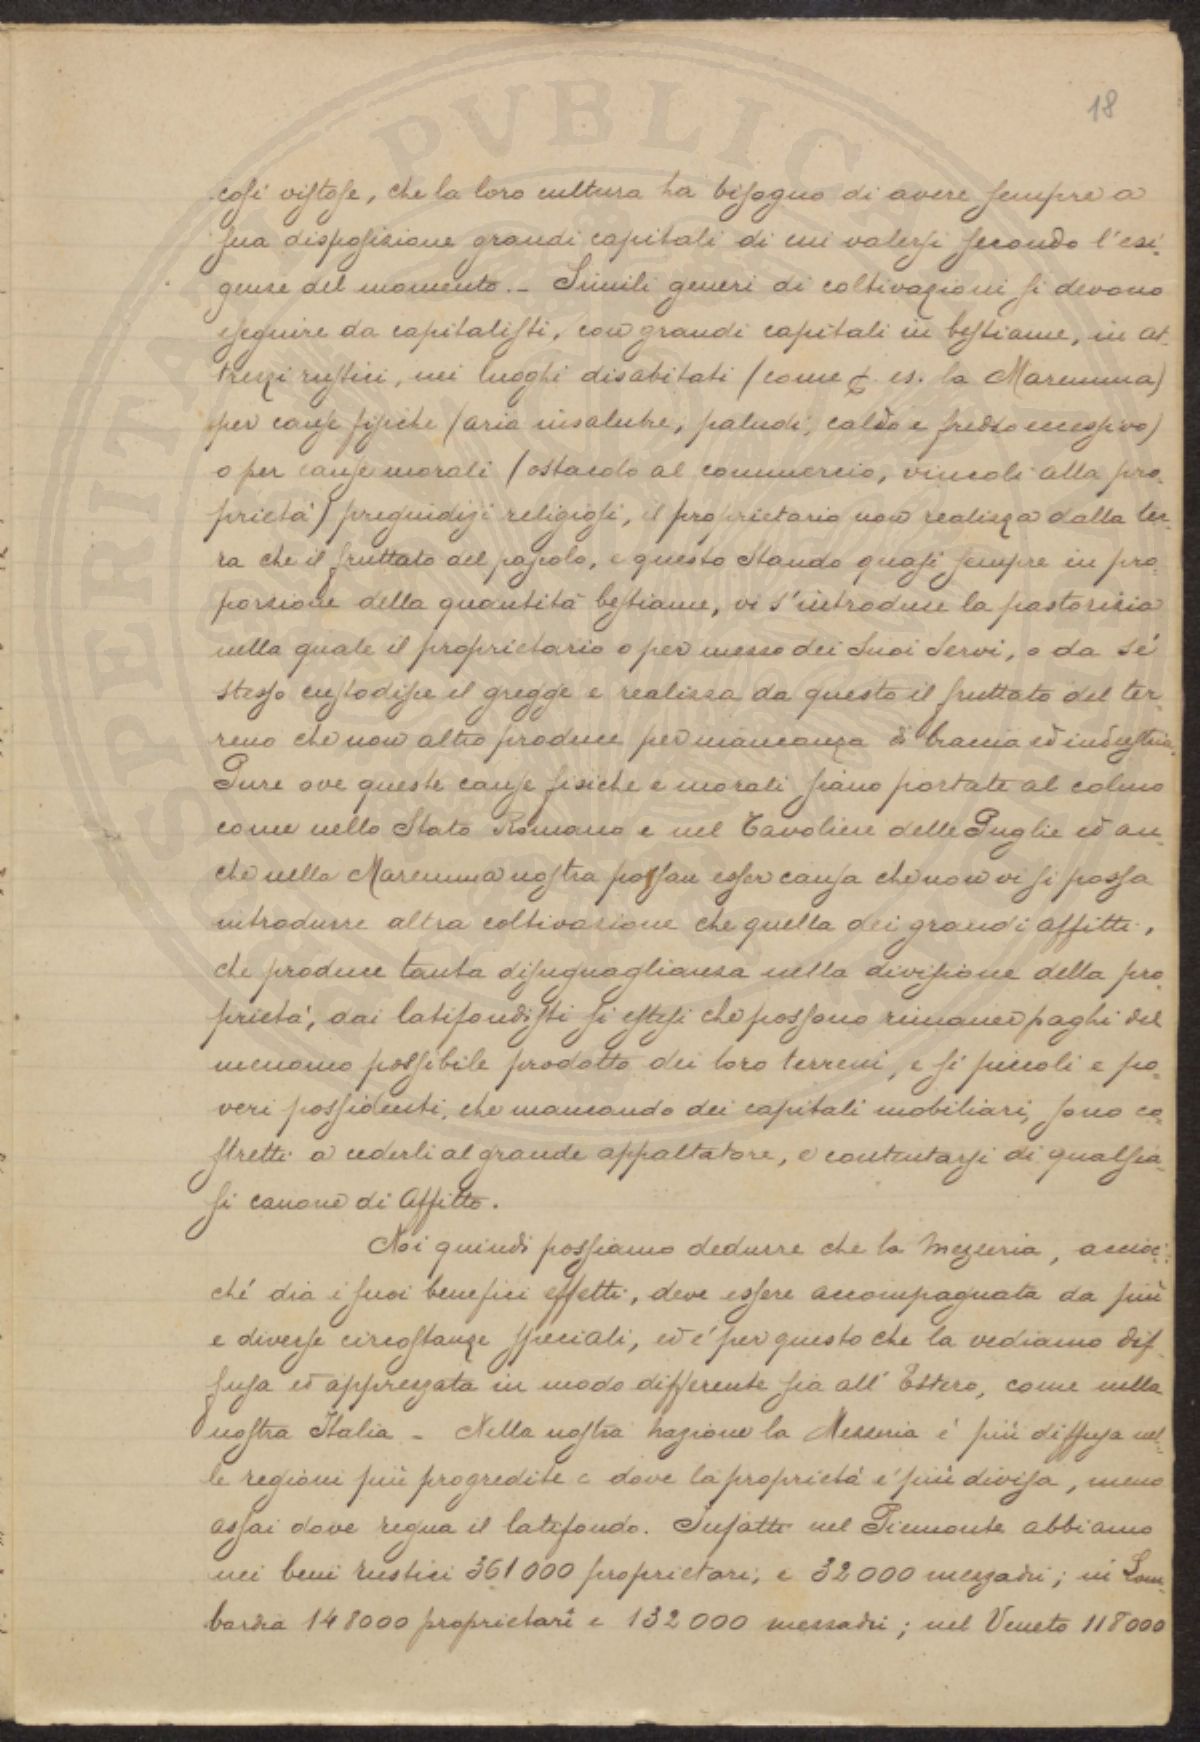 18
così vistose, che la loro cultura ha bisogno di avere sempre a
sua disposizione grandi capitali di cui valersi secondo l'esi-
genze del momento. - Simili generi di coltivazioni si devono
eseguire da capitalisti, con grandi capitali in bestiame, in at-
trezzi rustici, nei luoghi disabitati (come p. es. la Maremma)
per cause fisiche (aria insalubre, paludi, caldo e freddo eccessivo)
o per cause morali (ostacolo al commercio, vincoli alla pro-
prietà) pregiudizi religiosi, il proprietario non realizza dalla ter-
ra che il fruttato del pascolo, e questo stando quasi sempre in pro-
porzione della quantità bestiame, vi s'introduce la pastorizia
nella quale il proprietario o per mezzo dei suoi servi, o da sé
stesso custodisce il gregge e realizza da questo il fruttato del ter-
reno che non altro produce per mancanza di braccia ed industria.
Pure ove queste cause fisiche e morali siano portate al colmo
come nello Stato Romano e nel Tavoliere delle Puglie ed an-
che nella Maremma nostra possan esser causa che non vi si possa
introdurre altra coltivazione che quella dei grandi affitti,
che produce tanta disuguaglianza nella divisione della pro-
prietà, dai latifondisti sì estesi che possono rimaner paghi del
menomo possibile prodotto dei loro terreni, e sì piccoli e po-
veri possidenti, che mancando dei capitali mobiliari, sono co-
stretti a cederli al grande appaltatore, e contentarsi di qualsia-
si canone di Affitto.
Noi quindi possiamo dedurre che la Mezzeria, accioc-
ché dia i suoi benefici effetti, deve essere accompagnata da più
e diverse circostanze speciali, ed è per questo che la vediamo dif-
fusa ed apprezzata in modo differente sia all'Estero, come nella
nostra Italia - Nella nostra Nazione la Mezzeria è più diffusa nel-
le regioni più progredite e dove la proprietà è più divisa, meno
assai dove regna il latifondo. Infatti nel Piemonte abbiamo
nei beni rustici 361000 proprietari, e 32000 mezzadri; in Lom-
bardia 148000 proprietari e 132000 mezzadri; nel Veneto 118000
SPERITAS PVBLICA